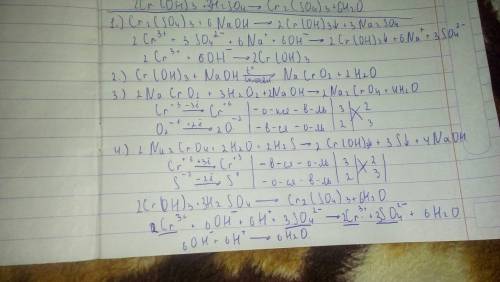 2Cr(OH)3+3H2SO4→Cr2(SO4)3+6H2O
1.) Cr2(SO4)3+6NaOH→2Cr(OH)3↓+3Na2SO4
2Cr³⁺+3SO4²⁻+6Na⁺+6OH⁻→2Cr(OH)3↓+6Na⁺+3SO4²⁻
2Cr³⁺+6OH⁻→2Cr(OH)3
2.) Cr(OH)3+NaOH→NaCrO2+2H2O
3) 2NaCrO2+3H2O2+2NaOH→2Na2CrO4+4H2O
Cr⁺³ -3ē→Cr⁺⁶ |-о-ил-в-ль|3|2
O2⁻¹ +2ē→2O⁻² |-в-ся-о-ль|2|3
4) 2Na2CrO4+2H2O+2H2S→2Cr(OH)3↓+3S↓+4NaOH
Cr⁺⁶+3ē→Cr⁺³ |-в-ся-о-ль|3|2
S⁻²-2ē→S⁰ |-о-ся-в-ль|2|3
2Cr(OH)3+3H2SO4→Cr2(SO4)3+6H2O
2Cr³⁺+6OH⁻+6H⁺+3SO4²⁻→2Cr³⁺+3SO4²⁻+6H2O
6OH⁻+6H⁺→6H2O